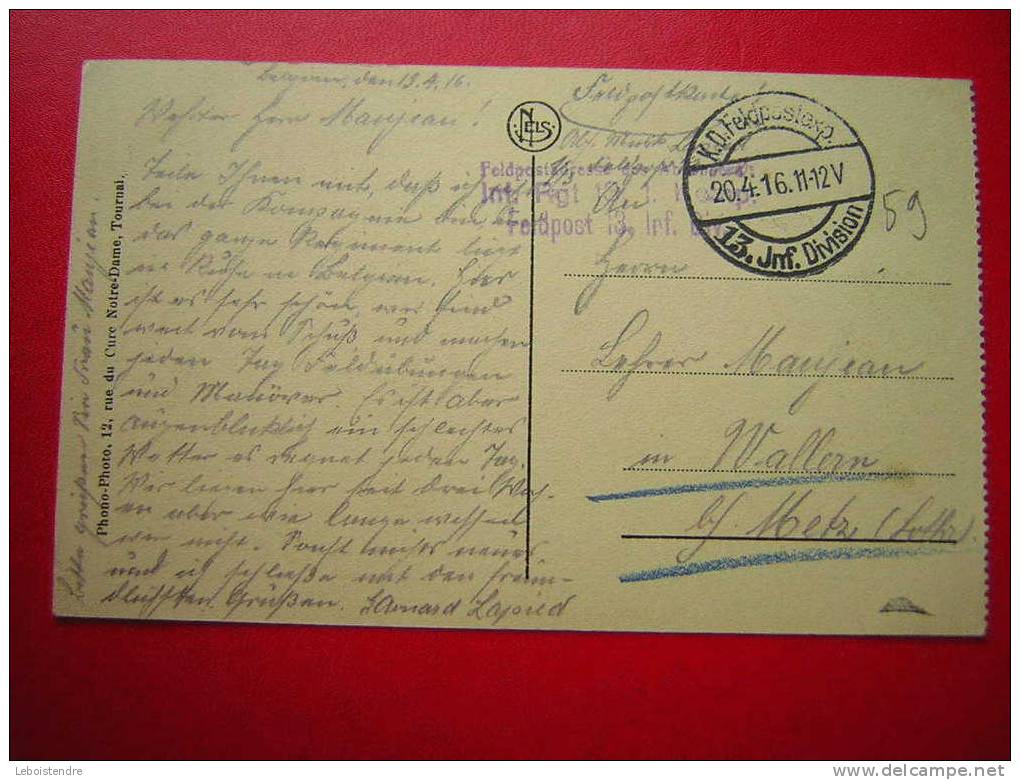 Belgien, den 19.4.16.
Werter Herr Maujean!
Teile Ihnen mit, daß ich
bei der Kompagnie bin
das ganze Regiment liegt
in Ruhe in Belgien. Hier
ist es sehr schön, wir sind
weit vom Schuß und machen
jeden Tag Feldübungen
und Manöver. Es ist aber
augenblicklich ein schlechtes
Wetter es regnet jeden Tag.
Wir liegen hier seit drei Woch-
en aber wie lange wissen
wir nicht. Sonst nichts neues
und ich schließe mit den freun-
dlichsten Grüßen.
Bitte grüßen Sie Frau Maujean.
Phono-Photo, 12, rue du Curé Notre-Dame, Tournai.
NELS
Feldpostkarte!
Feldpostadresse
Inf. Rgt
Feldpost 13. Inf. Div.
K.D. Feldpostexp.
20.4.16.11-12V
13. Inf. Division
59
An
Herrn
Lehrer Maujean
in Wallern
b/ Metz (Lothr.)
Leboistendre
delcampe.net